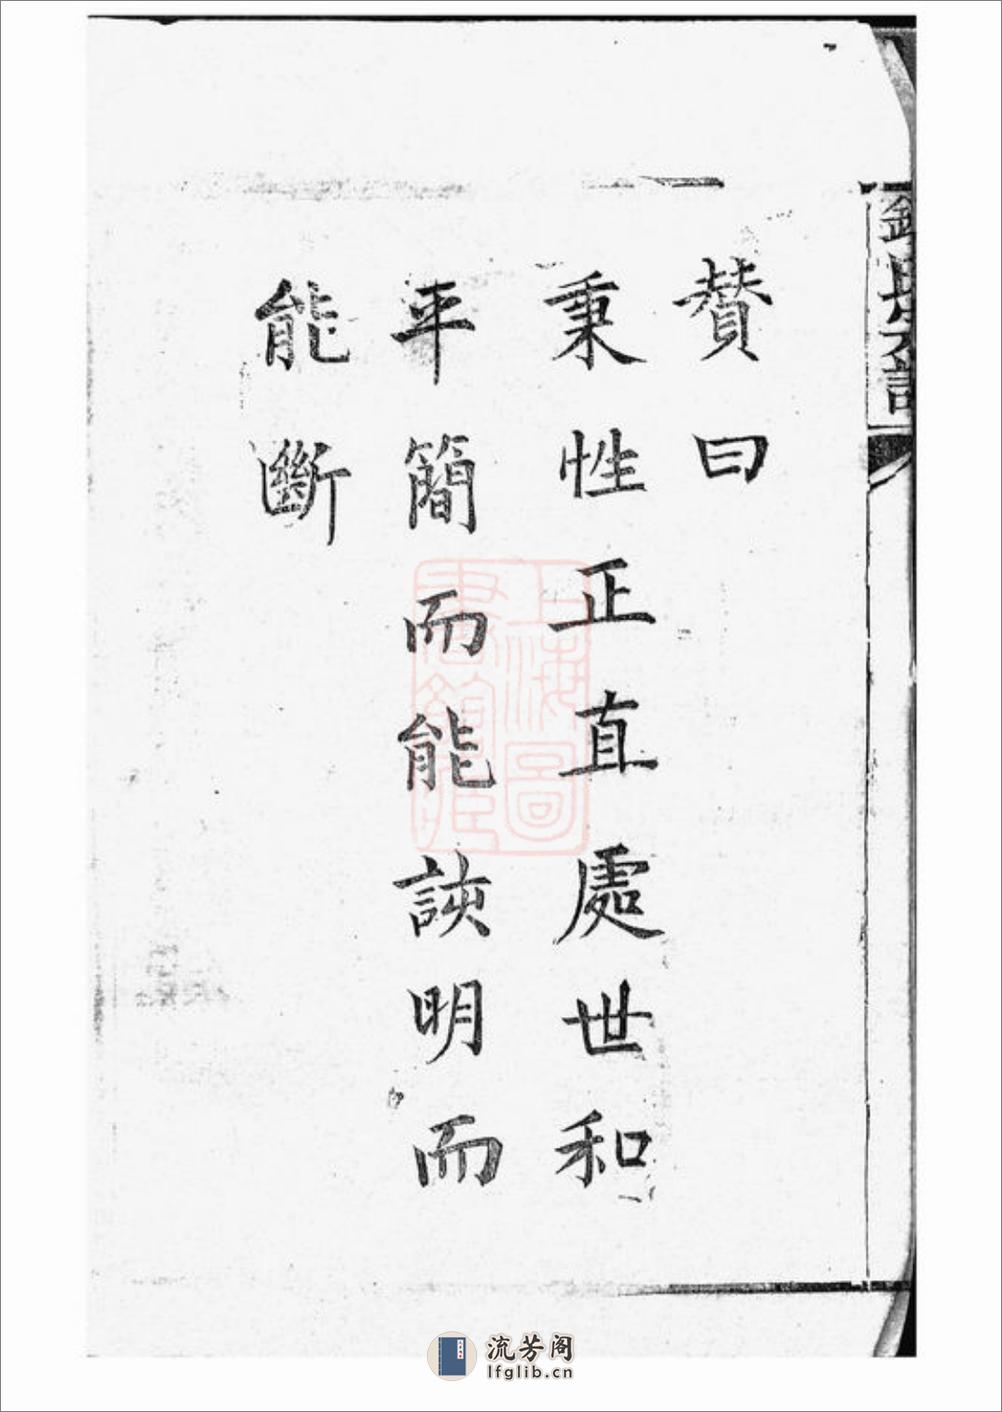 贊曰
秉性正直處世和
平簡而能誙明而
能斷
上海圖
書館藏
流芳阁
lfglib.cn